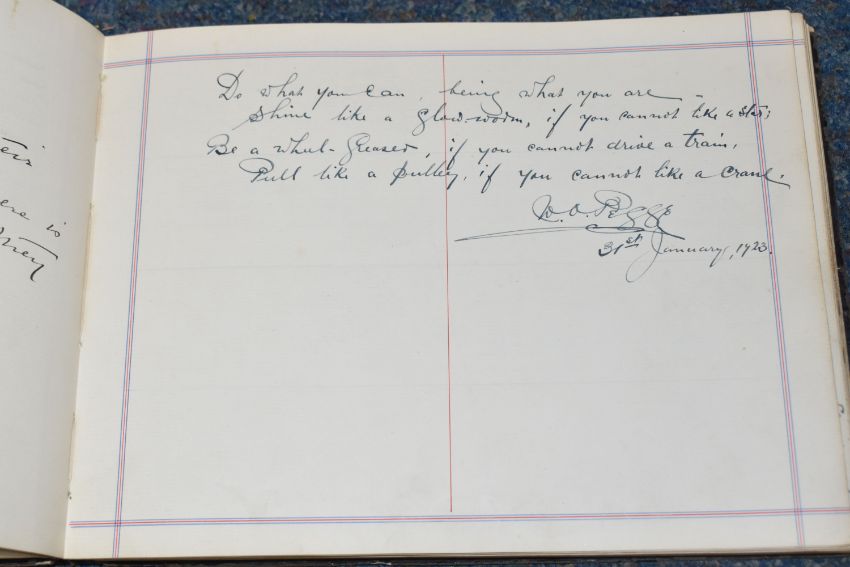 Do what you can, being what you are -
Shine like a glow-worm, if you cannot like a star;
Be a wheel-greaser, if you cannot drive a train,
Pull like a pulley, if you cannot like a crane.
Pegge
31st January, 1923.
is